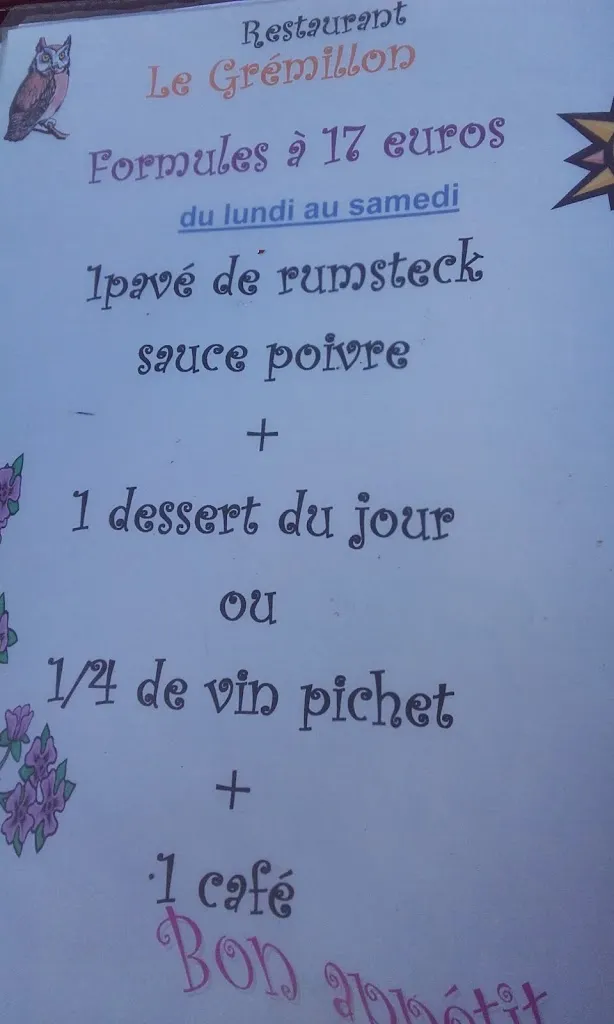 Restaurant
Le Grémillon
Formules à 17 euros
du lundi au samedi
1pavé de rumsteck
sauce poivre
+
1 dessert du jour
ou
1/4 de vin pichet
+
1 café
Bon appétit